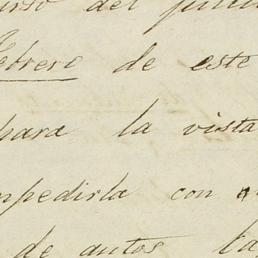 curso del
Febrero de este
para la vista
mpedirla con
de autos